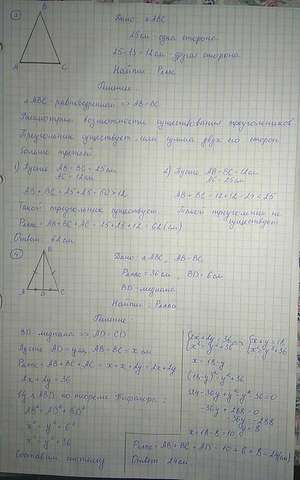 3
B
A
C
Дано: △ABC
25см - одна сторона
25-13=12см - другая сторона
Найти: P△ABC
Решение
△ABC - равнобедренный => AB=BC
Рассмотрим возможности существования треугольников
Треугольник существует, если сумма двух его сторон
больше третьей
1) Пусть AB=BC=25см
AC=12см
AB+BC=25+25=50>12
Такой треугольник существует
P△ABC=AB+BC+AC=25+25+12=62(см)
Ответ: 62см
2) Пусть AB=BC=12см
AC=25см
AB+BC=12+12=24<25
Такой треугольник не
существует
4
B
A
D
C
Дано: △ABC, AB=BC
P△ABC=36см, BD=6см
BD - медиана
Найти: P△ABD
Решение
BD - медиана => AD=CD
Пусть AD=y см, AB=BC=x см
P△ABC=AB+BC+AC=x+x+2y=2x+2y
2x+2y=36
Из △ABD по теореме Пифагора:
AB²=AD²+BD²
x²=y²+6²
x²=y²+36
Составим систему
{2x+2y=36 {x+y=18
x²=y²+36 x²=y²+36
x=18-y
(18-y)²=y²+36
324-36y+y²-y²-36=0
-36y+288=0
-36y=-288
y=8
x=18-8=10
P△ABD=AB+BD+AD=10+6+8=24(см)
Ответ: 24см